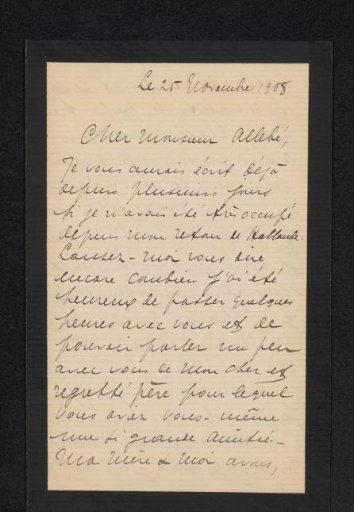 Le 25 Novembre 1908
Cher Monsieur Allebé,
Je vous aurais écrit déjà
depuis plusieurs jours
si je n'avais été très occupé
depuis mon retour de Hollande.
Laissez-moi vous dire
encore combien j'ai été
heureux de passer quelques
heures avec vous et de
pouvoir parler un peu
avec vous de mon cher et
regretté père pour lequel
vous avez vous-même
une si grande amitié.-
Ma mère & moi avons,